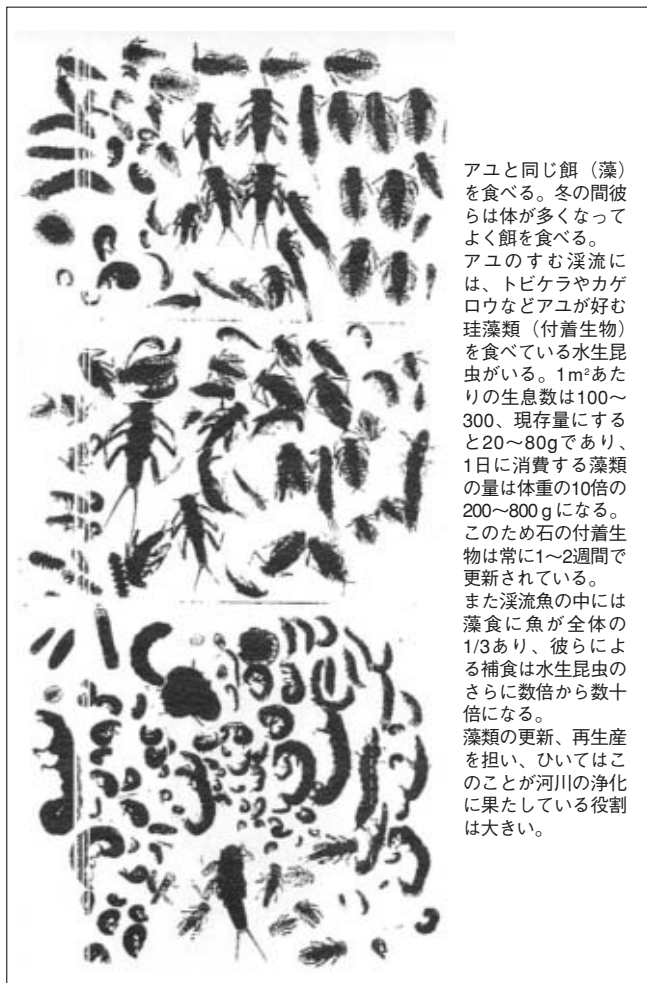 アユと同じ餌（藻）
を食べる。冬の間彼
らは体が多くなって
よく餌を食べる。
アユのすむ渓流に
は、トビケラやカゲ
ロウなどアユが好む
珪藻類（付着生物）
を食べている水生昆
虫がいる。1m²あた
りの生息数は100〜
300、現存量にする
と20〜80gであり、
1日に消費する藻類
の量は体重の10倍の
200〜800gになる。
このため石の付着生
物は常に1〜2週間で
更新されている。
また渓流魚の中には
藻食に魚が全体の
1/3あり、彼らによ
る補食は水生昆虫の
さらに数倍から数十
倍になる。
藻類の更新、再生産
を担い、ひいてはこ
のことが河川の浄化
に果たしている役割
は大きい。